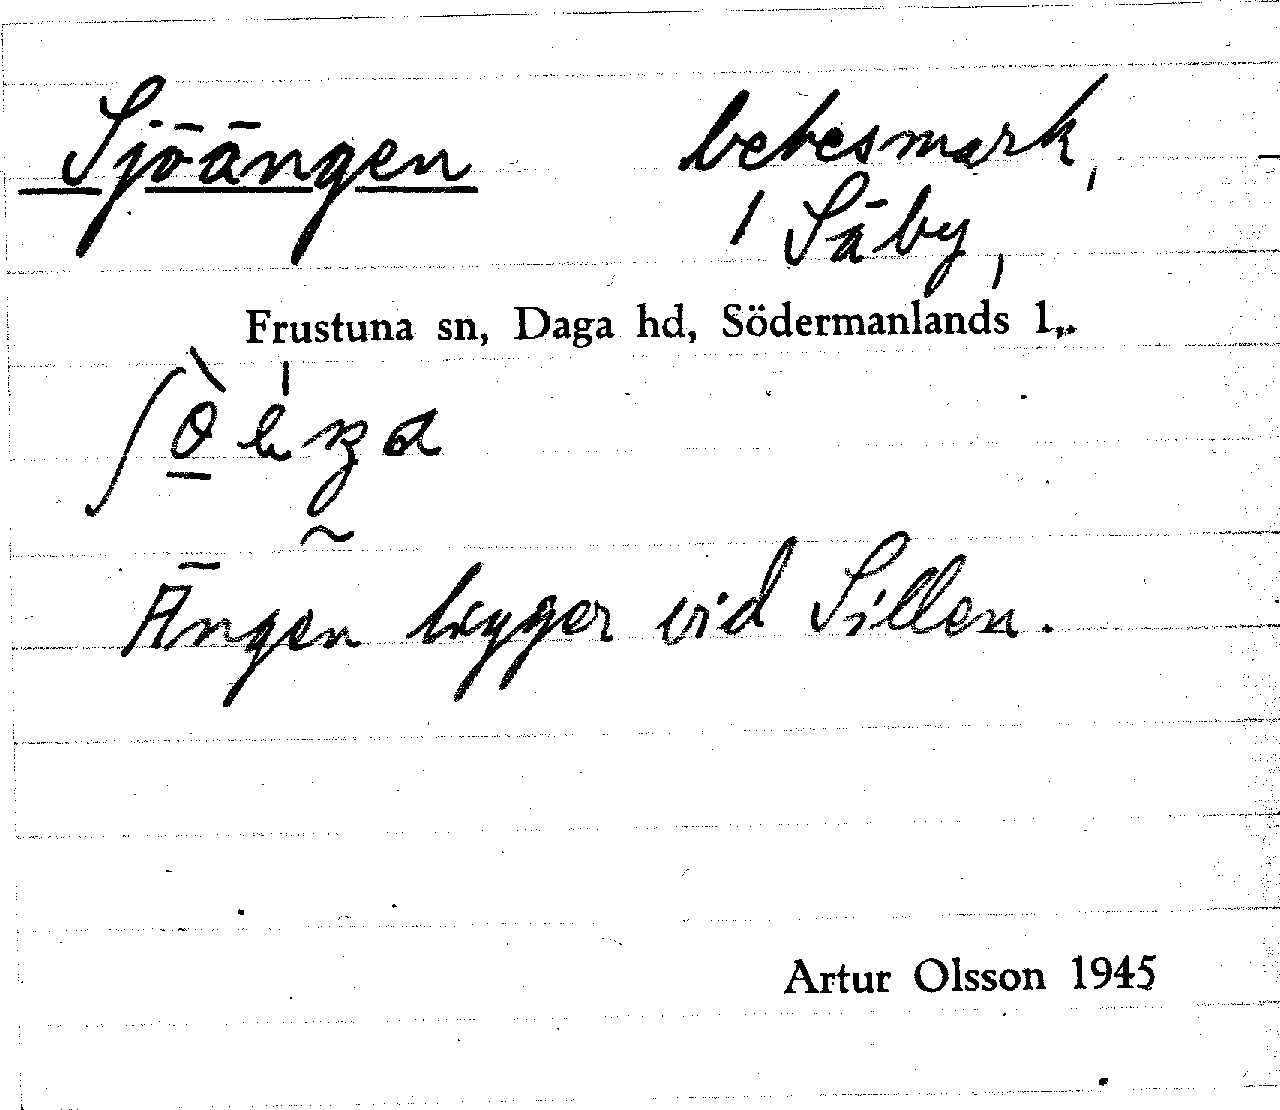 Sjöängen betesmark,
i Säby,
Frustuna sn, Daga hd, Södermanlands l.
Ängen ligger vid Sillen.
Artur Olsson 1945